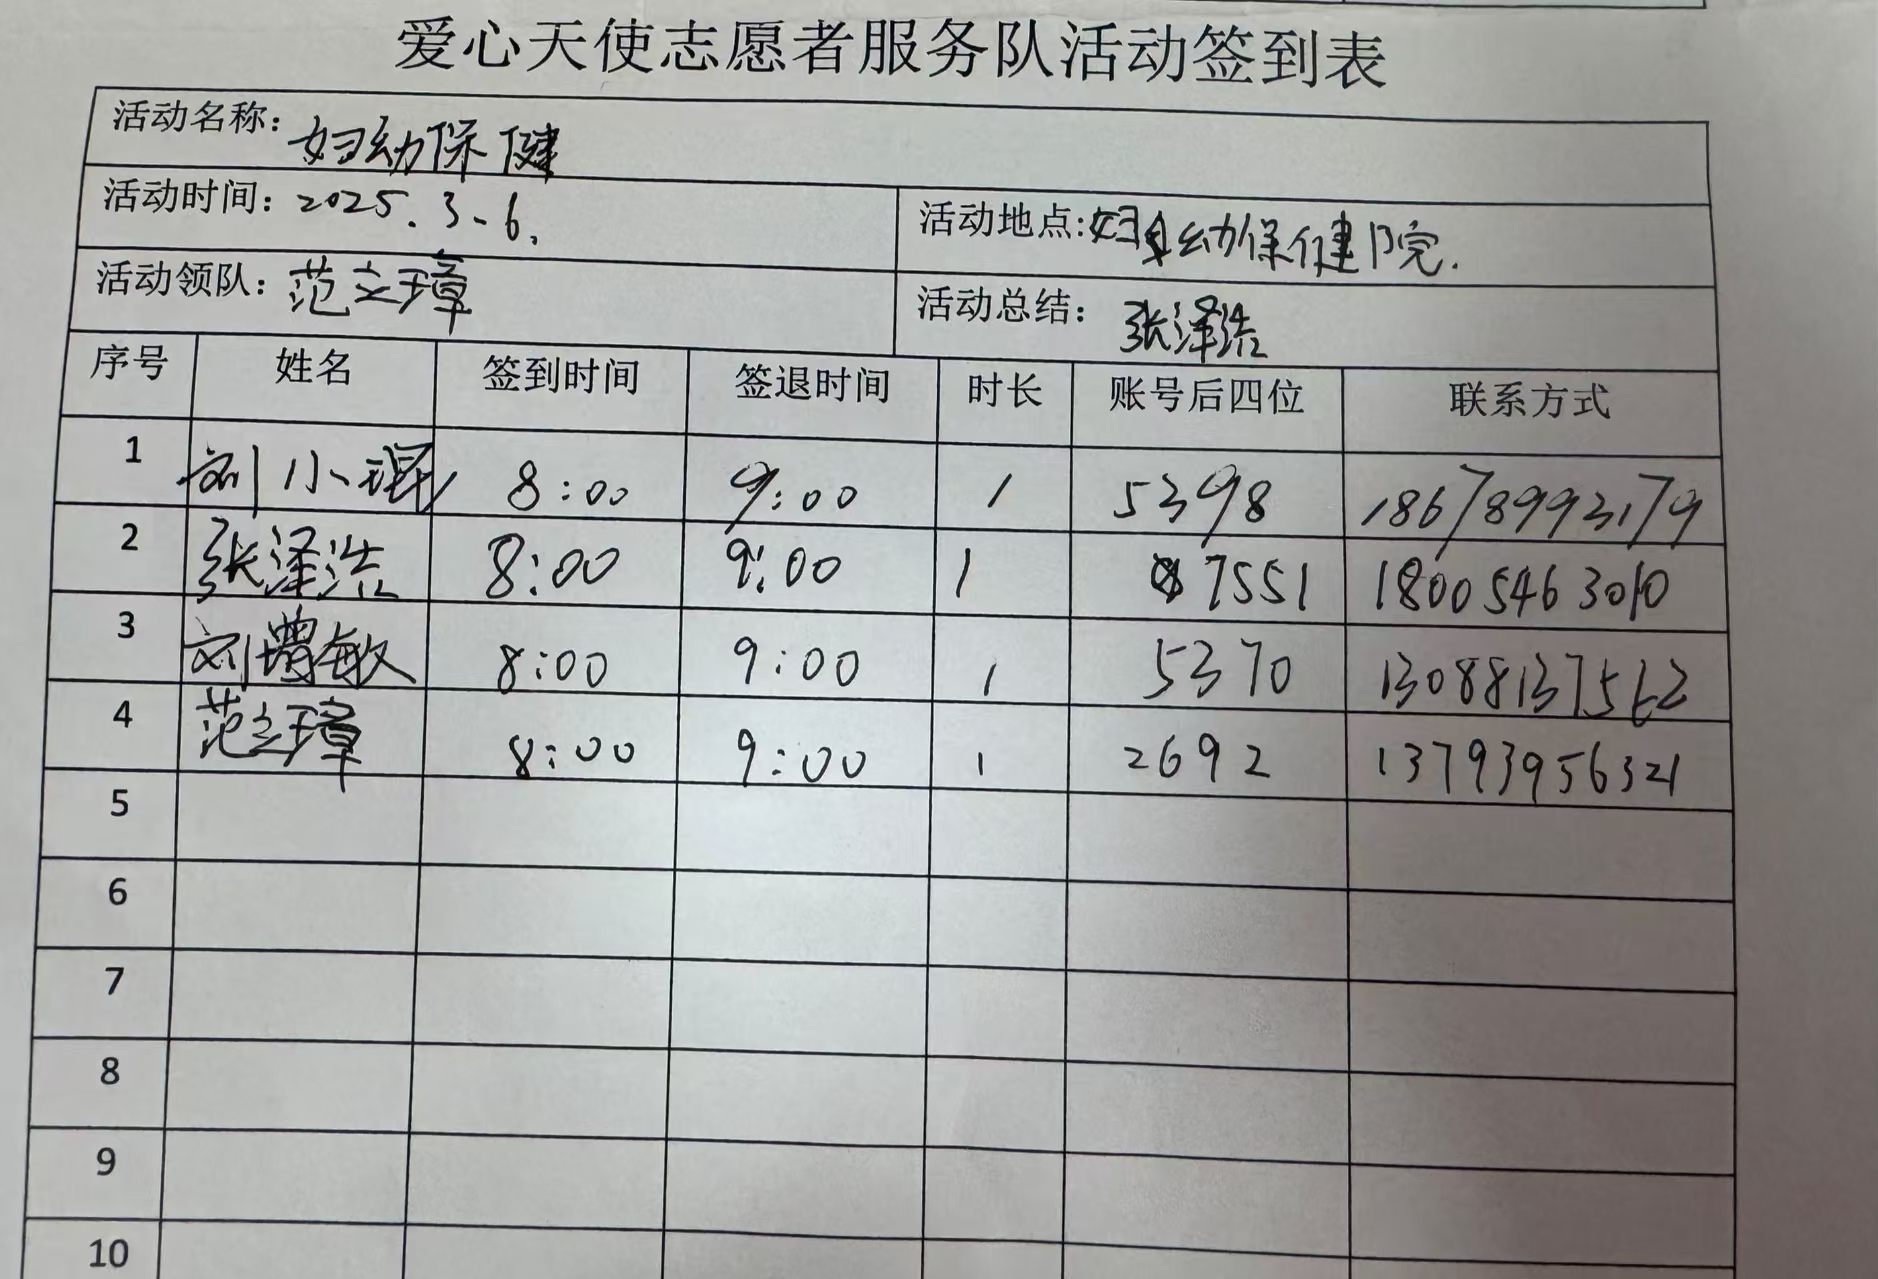 爱心天使志愿者服务队活动签到表
活动名称：妇幼保健
活动时间：2025.3-6. 活动地点：妇幼保健院.
活动领队：范立璋 活动总结：张泽浩
序号 姓名 签到时间 签退时间 时长 账号后四位 联系方式
1 刘小琨 8:00 9:00 1 5398 18678993179
2 张泽浩 8:00 9:00 1 7551 18005463010
3 刘增敏 8:00 9:00 1 5370 13088137562
4 范立璋 8:00 9:00 1 2692 13793956321
5
6
7
8
9
10